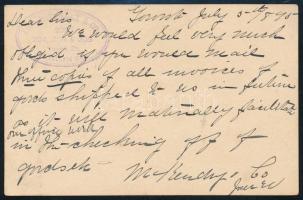 Dear Sirs, Toronto July 5th 1890
We would feel very much
obliged if you would mail
three copies of all invoices of
goods shipped to us in future
as it will materially facilitate
our office work
in the checking off of
goods &c
McKendry & Co